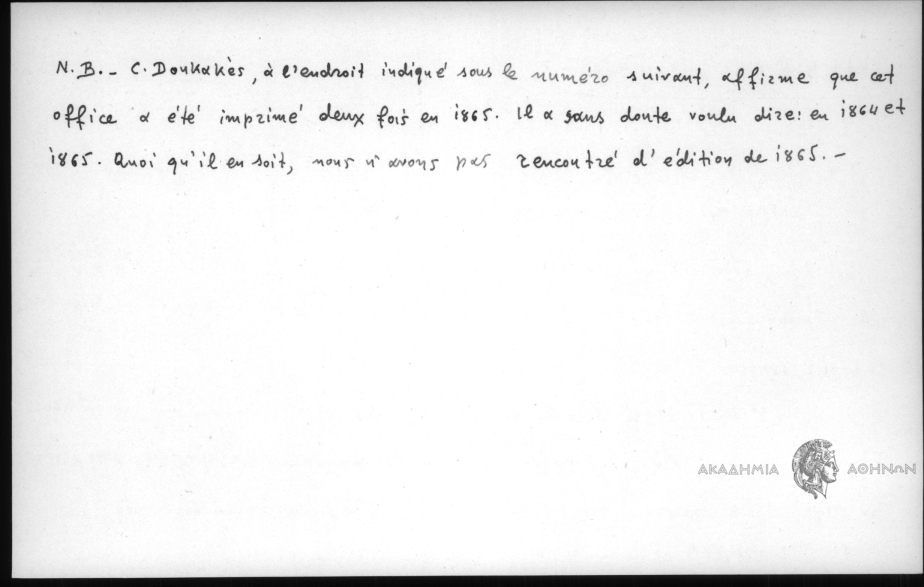 N.B. – C. Doukakès, à l'endroit indiqué sous le numéro suivant, affirme que cet
office a été imprimé deux fois en 1865. Il a sans doute voulu dire: en 1864 et
1865. Quoi qu'il en soit, nous n'avons pas rencontré d'édition de 1865. –
ΑΚΑΔΗΜΙΑ ΑΘΗΝΩΝ